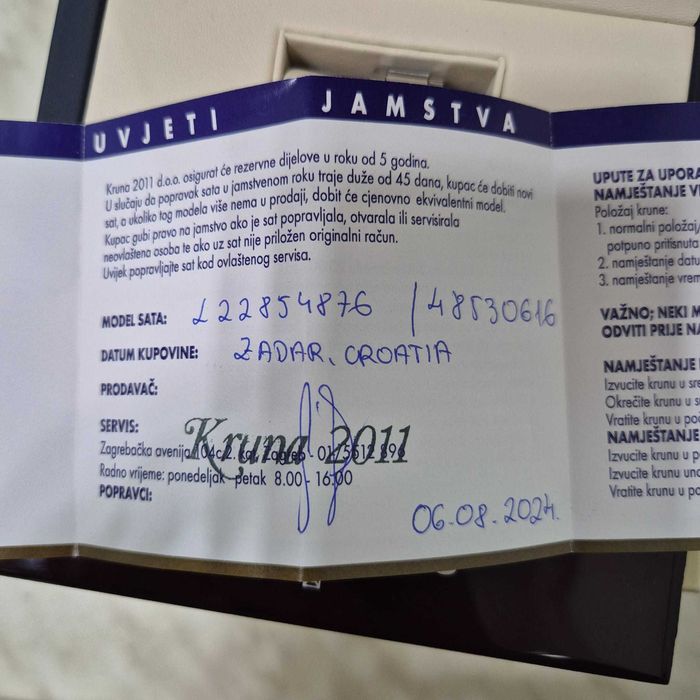 UVJETI JAMSTVA
Kruna 2011 d.o.o. osigurat će rezervne dijelove u roku od 5 godina.
U slučaju da popravak sata u jamstvenom roku traje duže od 45 dana, kupac će dobiti novi
sat, a ukoliko tog modela više nema u prodaji, dobit će cjenovno ekvivalentni model.
Kupac gubi pravo na jamstvo ako je sat popravljala, otvarala ili servisirala
neovlaštena osoba te ako uz sat nije priložen originalni račun.
Uvijek popravljajte sat kod ovlaštenog servisa.
MODEL SATA: L22854876 / 48530616
DATUM KUPOVINE: ZADAR, CROATIA
PRODAVAČ:
SERVIS:
Kruna 2011
Zagrebačka avenija 104c/2. kat, Zagreb - 01/5512 896
Radno vrijeme: ponedeljak - petak 8.00 - 16:00
POPRAVCI:
06.08.2024.
UPUTE ZA UPORA
NAMJEŠTANJE V
Položaj krune:
1. normalni položaj/
potpuno pritisnuta
2. namještanje datu
3. namještanje vrem
VAŽNO; NEKI M
ODVITI PRIJE NA
NAMJEŠTANJE
Izvucite krunu u sre
Okrećite krunu u s
Vratite krunu u po
NAMJEŠTANJE
Izvucite krunu u p
Izvucite krunu und
Vratite krunu u po